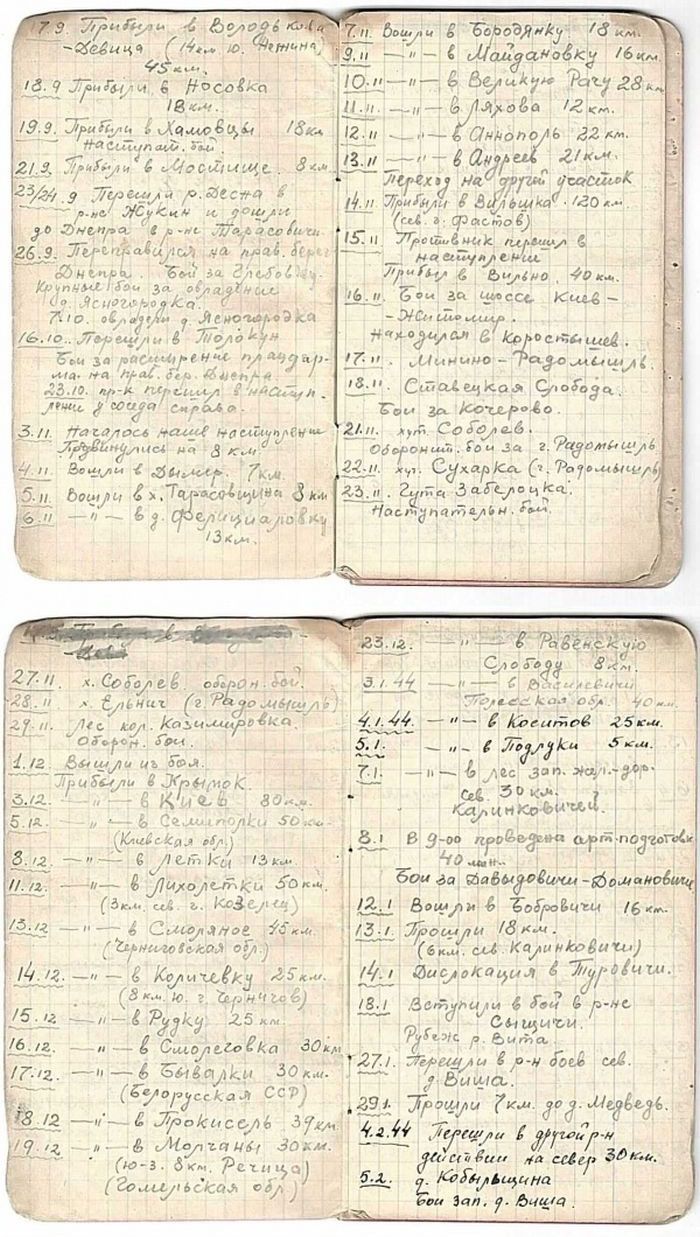 17.9. Прибыли в Володькова
-Девица (14 км ю. Нежина)
45 км.
18.9 Прибыли в Носовка
18 км.
19.9. Прибыли в Хамовцы 18 км
наступат. бой.
21.9. Прибыли в Мостище. 8 км.
23/24.9 Перешли р. Десна в
р-не Жукин и дошли
до Днепра в р-не Тарасовичи
26.9. Переправился на прав. берег
Днепра. Бои за Глебовку-
Крупные бои за овладение
д. Ясногородка.
7.10. овладели д. Ясногородка
16.10. Перешли в Толокун
Бои за расширение плацдар-
ма на прав. бер. Днепра.
23.10. пр-к перешил в наступ-
ление у соседа справа.
3.11. Началось наше наступление
Продвинулись на 8 км.
4.11. Вошли в Дымер. 7 км.
5.11 Вошли в х. Тарасовщина 8 км
6.11 —"— в д. Фелициаловку
13 км.
7.11. Вошли в Бородянку 18 км.
9.11 —"— в Майдановку 16 км.
10.11 —"— в Великую Рачу 28 км
11.11. —"— в Ляхова 12 км.
12.11 —"— в Аннополь 22 км.
13.11 —"— в Андреев 21 км.
Переход на другой участок
14.11 Прибыли в Вильшка. 120 км
(сев. г. Фастов)
15.11 Противник перешил в
наступление
Прибыл в Вильно. 40 км.
16.11. Бои за шоссе Киев-
-Житомир.
Находился в Коростышев.
17.11. Минино-Радомышль.
18.11. Ставецкая Слобода.
Бои за Кочерово.
21.11. хут. Соболев.
Оборонит. бои за г. Радомышль
22.11. хут. Сухарка (г. Радомышль)
23.11. Гута Забелоцка.
Наступательн. бой.
27.11. х. Соболев оборон. бой.
28.11. х. Ельнич (г. Радомышль)
29.11. Лес кол. Казимировка.
Оборон. бои.
1.12. Вышли из боя.
Прибыли в Крымок.
3.12. —"— в Киев 80 км.
5.12. —"— в Семиполки 50 км.
(Киевская обл.)
8.12. —"— в Летки 13 км.
11.12. —"— в Лихолетки 50 км.
(3 км. сев. г. Козелец)
13.12 —"— в Смоляное 45 км.
(Черниговская обл.)
14.12. —"— в Количевку 25 км.
(8 км. ю. г. Чернигов)
15.12 —"— в Рудку 25 км.
16.12 —"— в Смолеговка 30 км
17.12. —"— в Бывалки 30 км.
(Белорусская ССР)
18.12 —"— в Прокисель 39 км.
19.12 —"— в Молчаны 30 км.
(ю-з. 8 км. Речица)
(Гомельская обл.)
23.12. —"— в Равенскую
Слободу 8 км.
3.1.44 —"— в Василевичи
Полесская обл. 40 км.
4.1.44. —"— в Коситов 25 км.
5.1. —"— в Подлуки 5 км.
7.1. —"— в лес зап. жел-дор.
сев. 30 км.
Калинковичей.
8.1 В 9-00 проведена арт. подготовк
40 мин.
Бои за Давыдовичи-Домановичи
12.1 Вошли в Бобровичи 16 км.
13.1. Прошли 18 км.
(6 км. сев. Калинковичи)
14.1 Дислокация в Туровичи.
18.1 Вступили в бой в р-не
Сыщичи.
Рубеж р. Вита.
27.1. Перешли в р-н боев сев.
д. Виша.
29.1. Прошли 7 км. до д. Медведь.
4.2.44 Перешли в другой р-н
действии на север 30 км.
5.2. д. Кобыльщина
Бои зап. д. Виша.